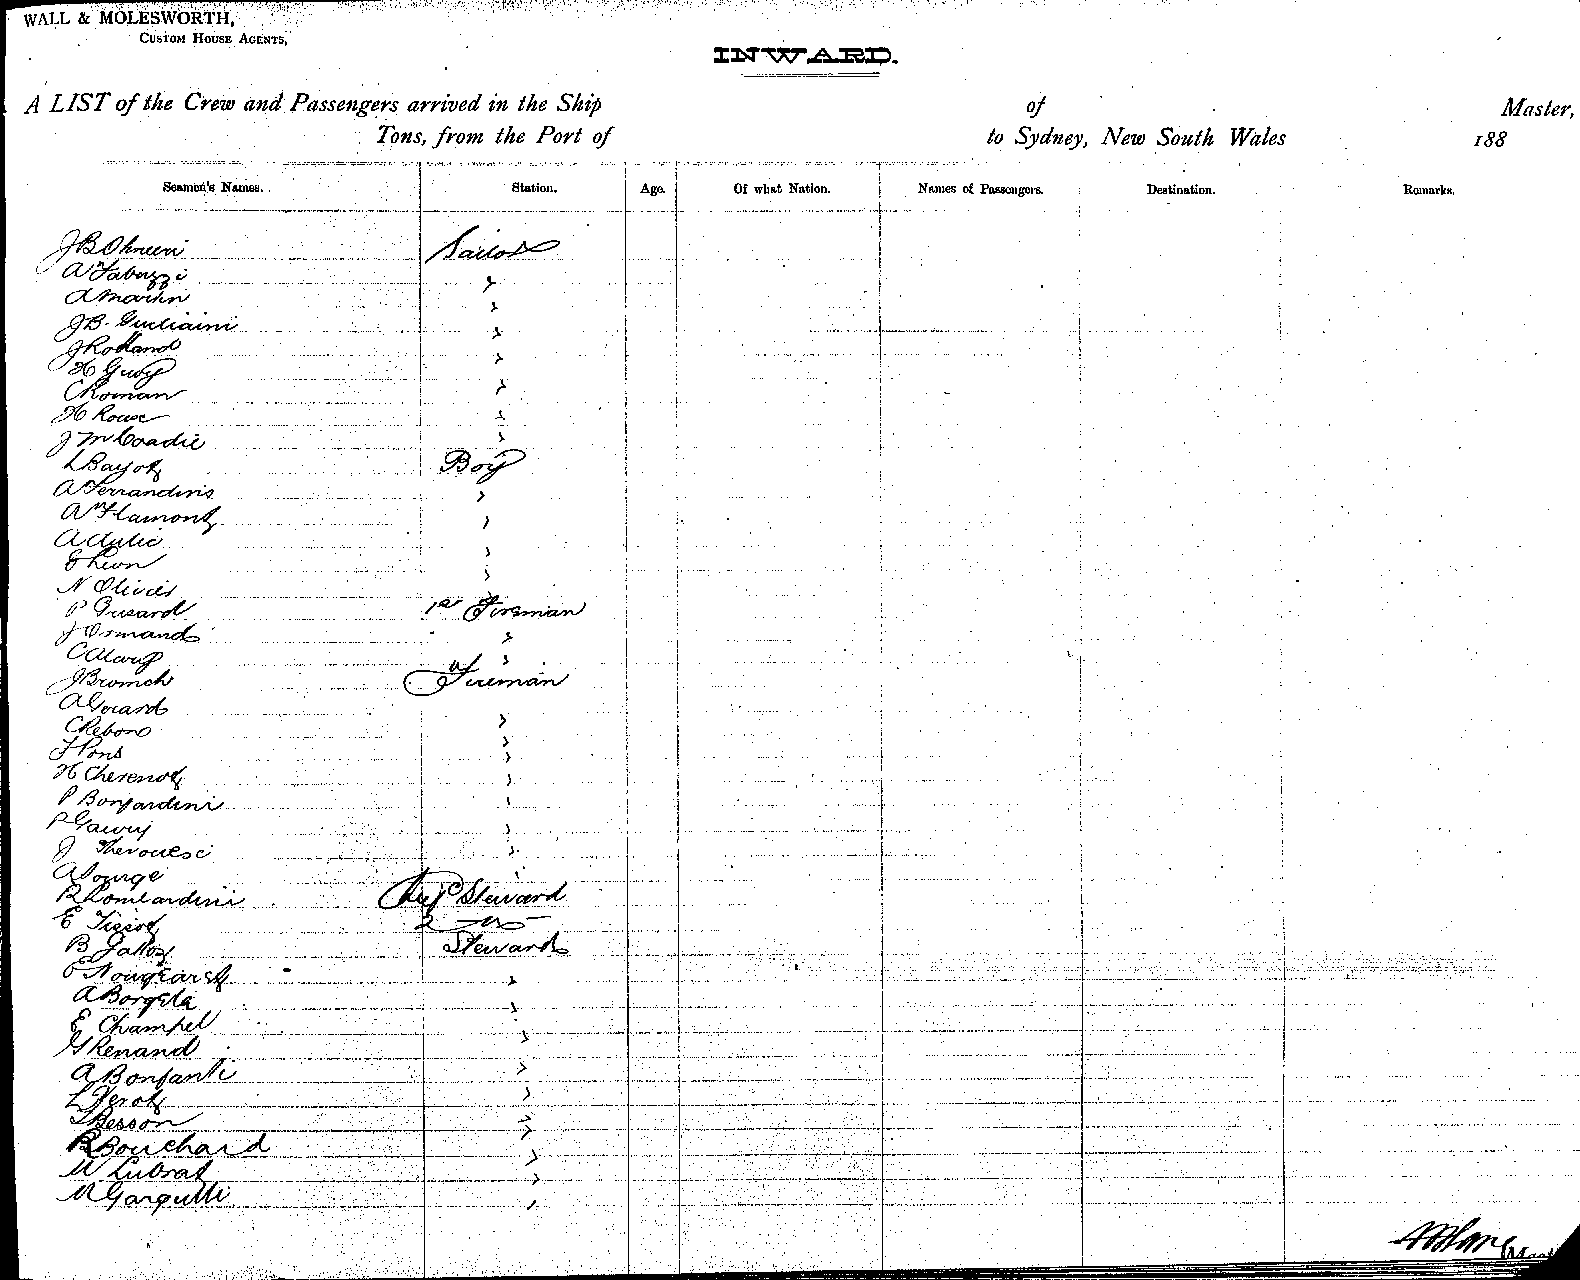 WALL & MOLESWORTH,
CUSTOM HOUSE AGENTS,
INWARD.
A LIST of the Crew and Passengers arrived in the Ship of Master,
Tons, from the Port of to Sydney, New South Wales 188
Seamen's Names. Station. Age. Of what Nation. Names of Passengers. Destination. Remarks.
J B Sailor
A
A Martin
J B. Giuliaini
J Rolland
H Guey
C Roman
H Rouse
J M Coadic
L Bayol Boy
A Ferrandinis
A Flamont
A
E Leon
N Olivier
P Gusard 1st Fireman
J Ormand
C
J Bromch Fireman
A Gerard
C Rebond
J Pons
H Cherenot
P Bonfardini
P
J
A Sourge
R Lombardini Chief Steward
E Tissot 2 do
B Gallo Steward
A Borgela
E Champel
G Renand
A Bonfanti
L Gerot
J Besson
B Bouchard
M Lubrat
M Gargulli
Master